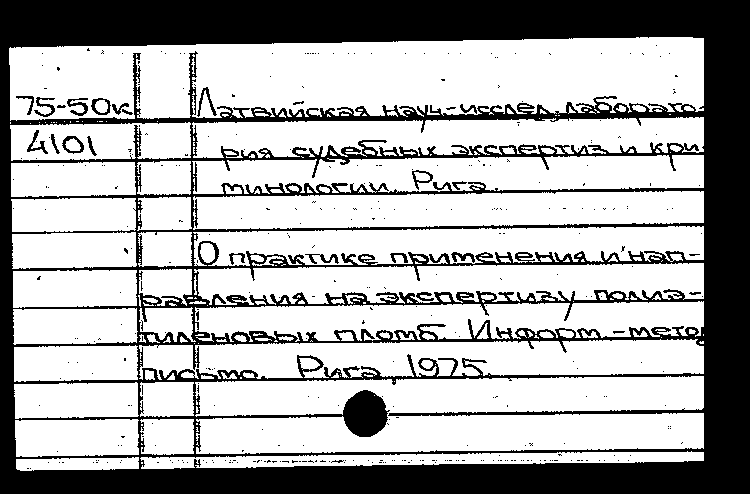 75-50к Латвийская науч.-исслед. лаборато-
4101 рия судебных экспертиз и кри-
минологии. Рига.
О практике применения и нап-
равления на экспертизу полиэ-
тиленовых пломб. Информ.-метод
письмо. Рига, 1975.